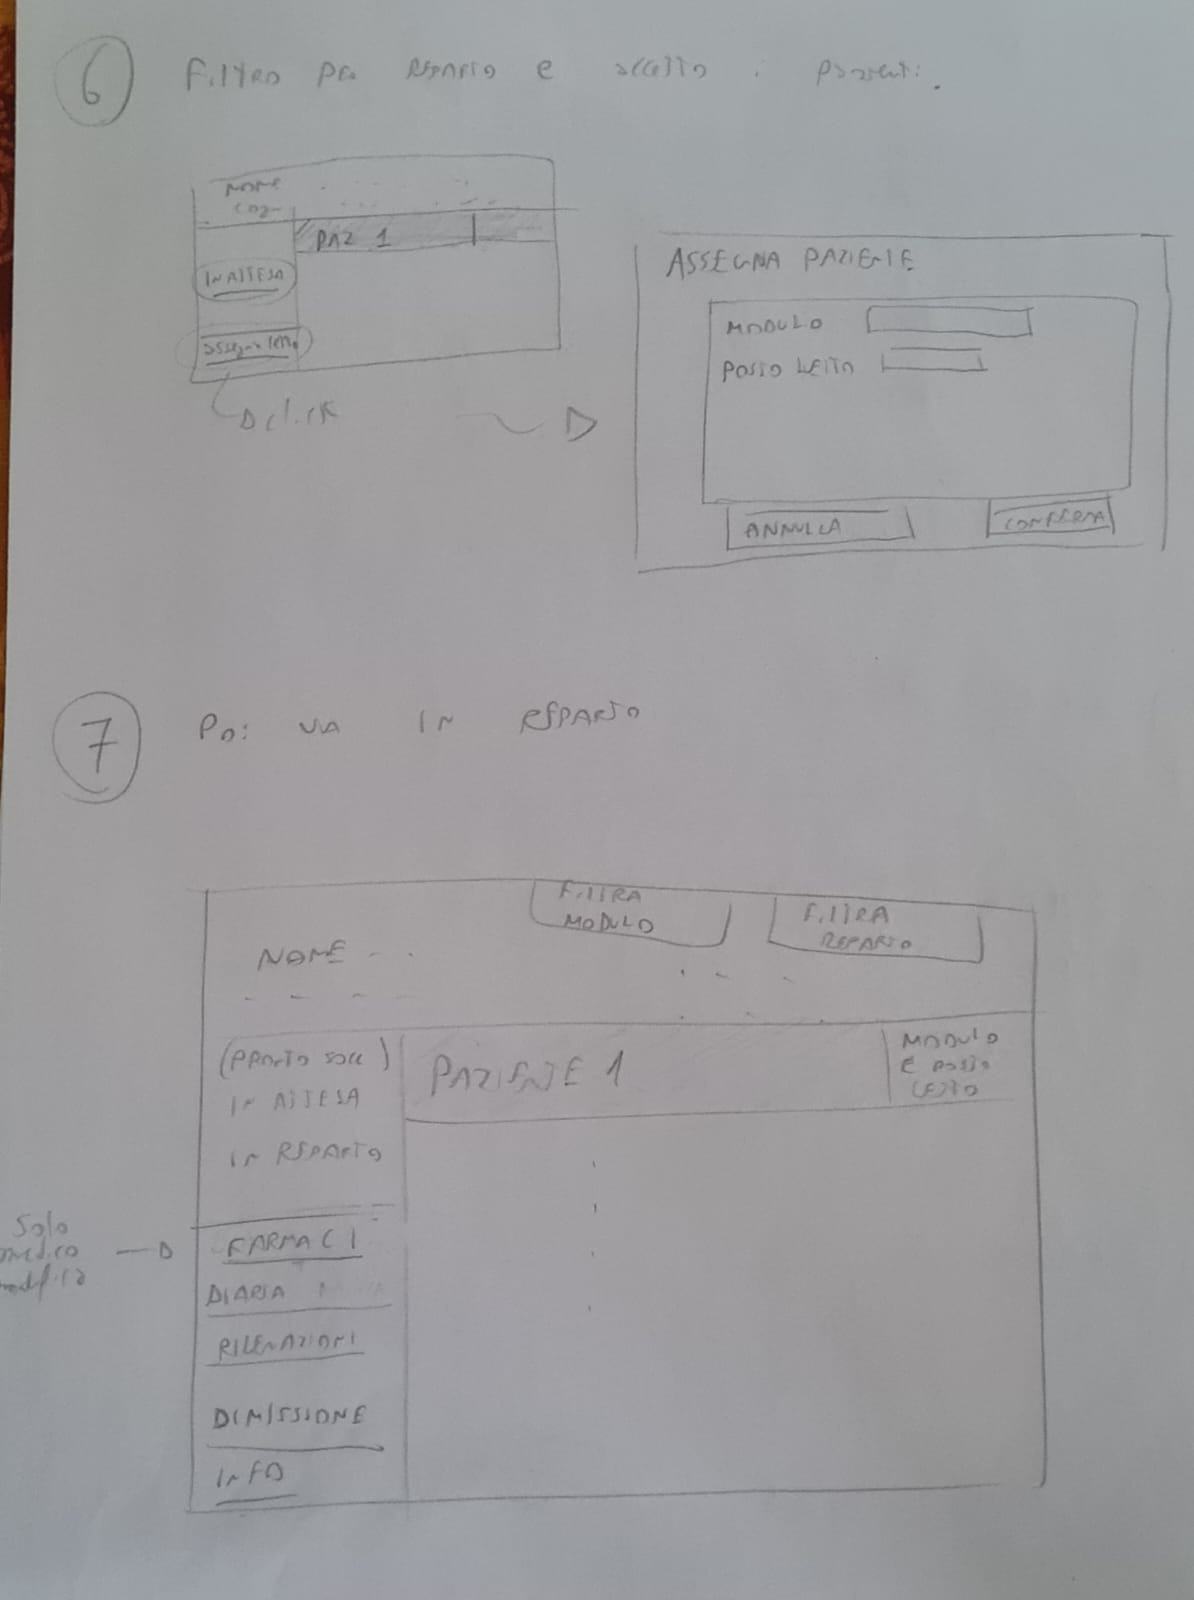 6 Filtro per REPARTO e accetto i pazienti.
NOME
COG-
PAZ 1
IN ATTESA
assegna letto
click
ASSEGNA PAZIENTE
MODULO
POSTO LETTO
ANNULLA
CONFERMA
7 Poi VA IN REPARTO
FILTRA
MODULO
FILTRA
REPARTO
NOME
(PRONTO SOCC)
IN ATTESA
IN REPARTO
PAZIENTE 1
MODULO
E POSTO
LETTO
Solo
medico
modifica
FARMACI
DIARIA
RILEVAZIONI
DIMISSIONE
INFO